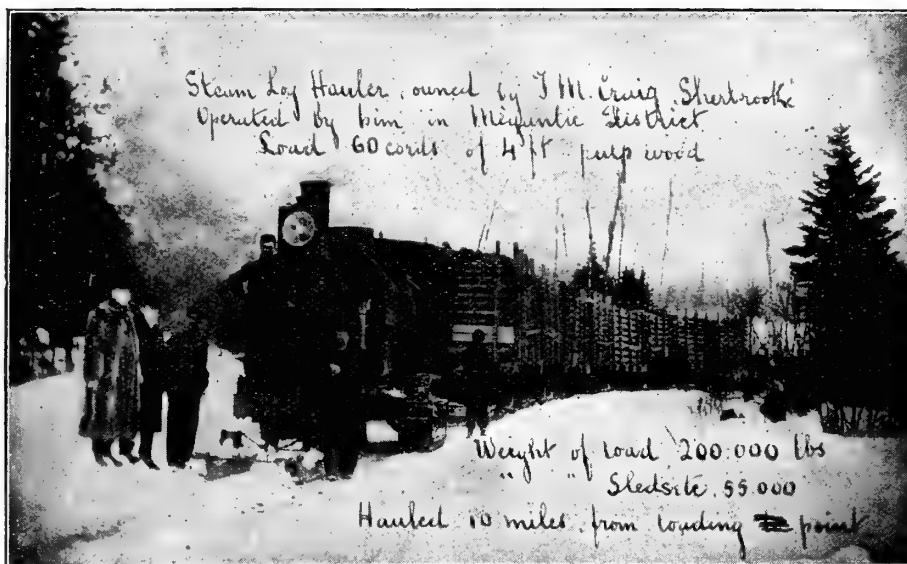 Steam Log Hauler, owned by F M. Craig Sherbrooke
Operated by him in Megantic District
Load 60 cords of 4 ft pulp wood
Weight of load 200.000 lbs
" " Sledsite. 55.000
Hauled 10 miles from loading point